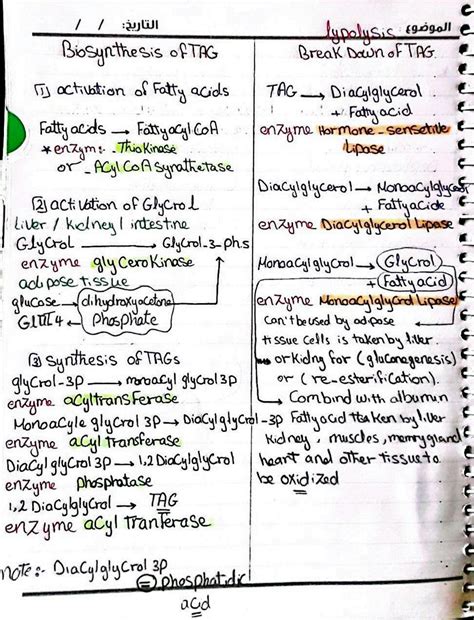 التاريخ: / /
الموضوع lypolysis
Biosynthesis of TAG
[1] activation of Fatty acids
Fattyacids → FattyacylCoA
* enzym:- Thiokinase
or - ACylCoA Synathetase
[2] activation of Glycrol
Liver / Kidney / intestine
Glycrol → Glycrol-3-phs
enzyme glycerokinase
adipose tissue
glucose → dihydroxyacetone
GLUT4 ← Phosphate
[3] Synthesis of TAGs
glycrol-3p → monoacyl glycrol3p
enzyme acyltransferase
Monoacyle glycrol 3p → Diacylglycrol-3p
enzyme acyl transferase
Diacyl glycrol 3p → 1,2 Diacylglycrol
enzyme phosphatase
1,2 Diacylglycrol → TAG
enzyme acyl tranferase
Note:- Diacylglycrol 3p
= phosphatidic
acid
Break Down of TAG
TAG → Diacylglycerol
+ Fatty acid
enzyme Hormone-sensetive
lipase
Diacylglycerol → Monoacylglycerol
+ Fattyacide
enzyme Diacylglycerol Lipase
Monoacylglycrol → Glycrol
+ Fattyacid
enzyme Monoacylglycrol lipase
Can't be used by adipose
tissue cells is taken by liver
or Kidny for (gluconogenesis)
or (re-esterification).
Combind with albumin
Fatty acid taken by liver
kidney, muscles, memrygland
heart and other tissue to
be oxidized